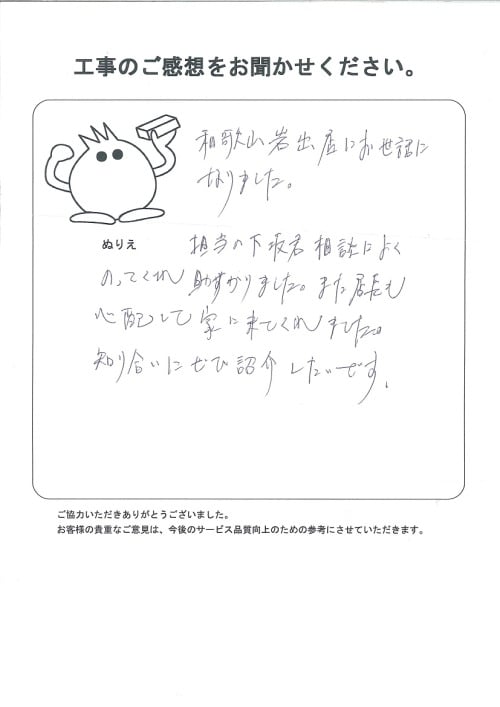 工事のご感想をお聞かせください。
和歌山岩出店にお世話に
なりました。
ぬりえ
担当の下坂君 相談によく
のってくれ 助すかりました。また店長も
心配して家に来てくれました。
知り合いにぜひ紹介したいです。
ご協力いただきありがとうございました。
お客様の貴重なご意見は、今後のサービス品質向上のための参考にさせていただきます。